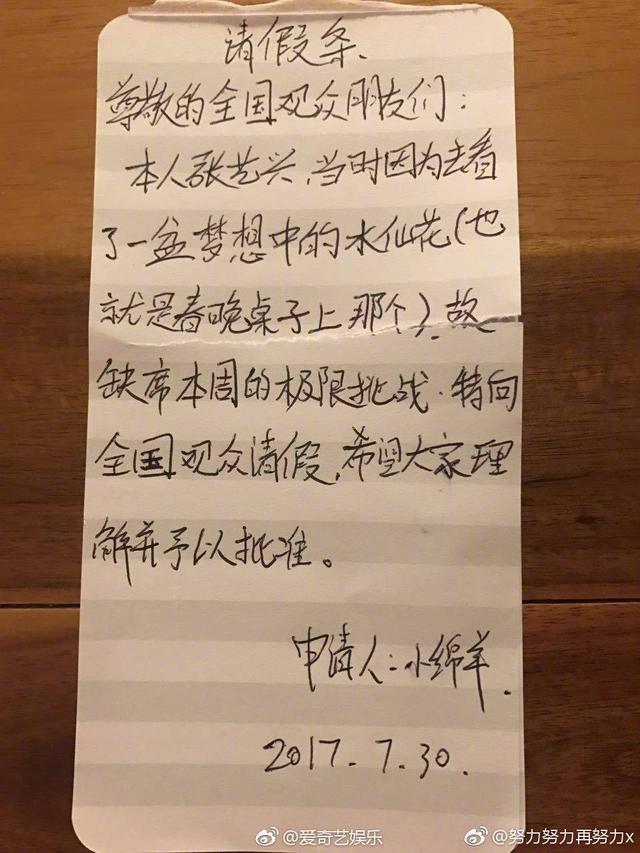 请假条.
尊敬的全国观众朋友们：
本人张艺兴，当时因为去看
了一盆梦想中的水仙花（也
就是春晚桌子上那个）.故
缺席本周的极限挑战.特向
全国观众请假，希望大家理
解并予以批准。
申请人：小绵羊.
2017.7.30.
@爱奇艺娱乐
@努力努力再努力x